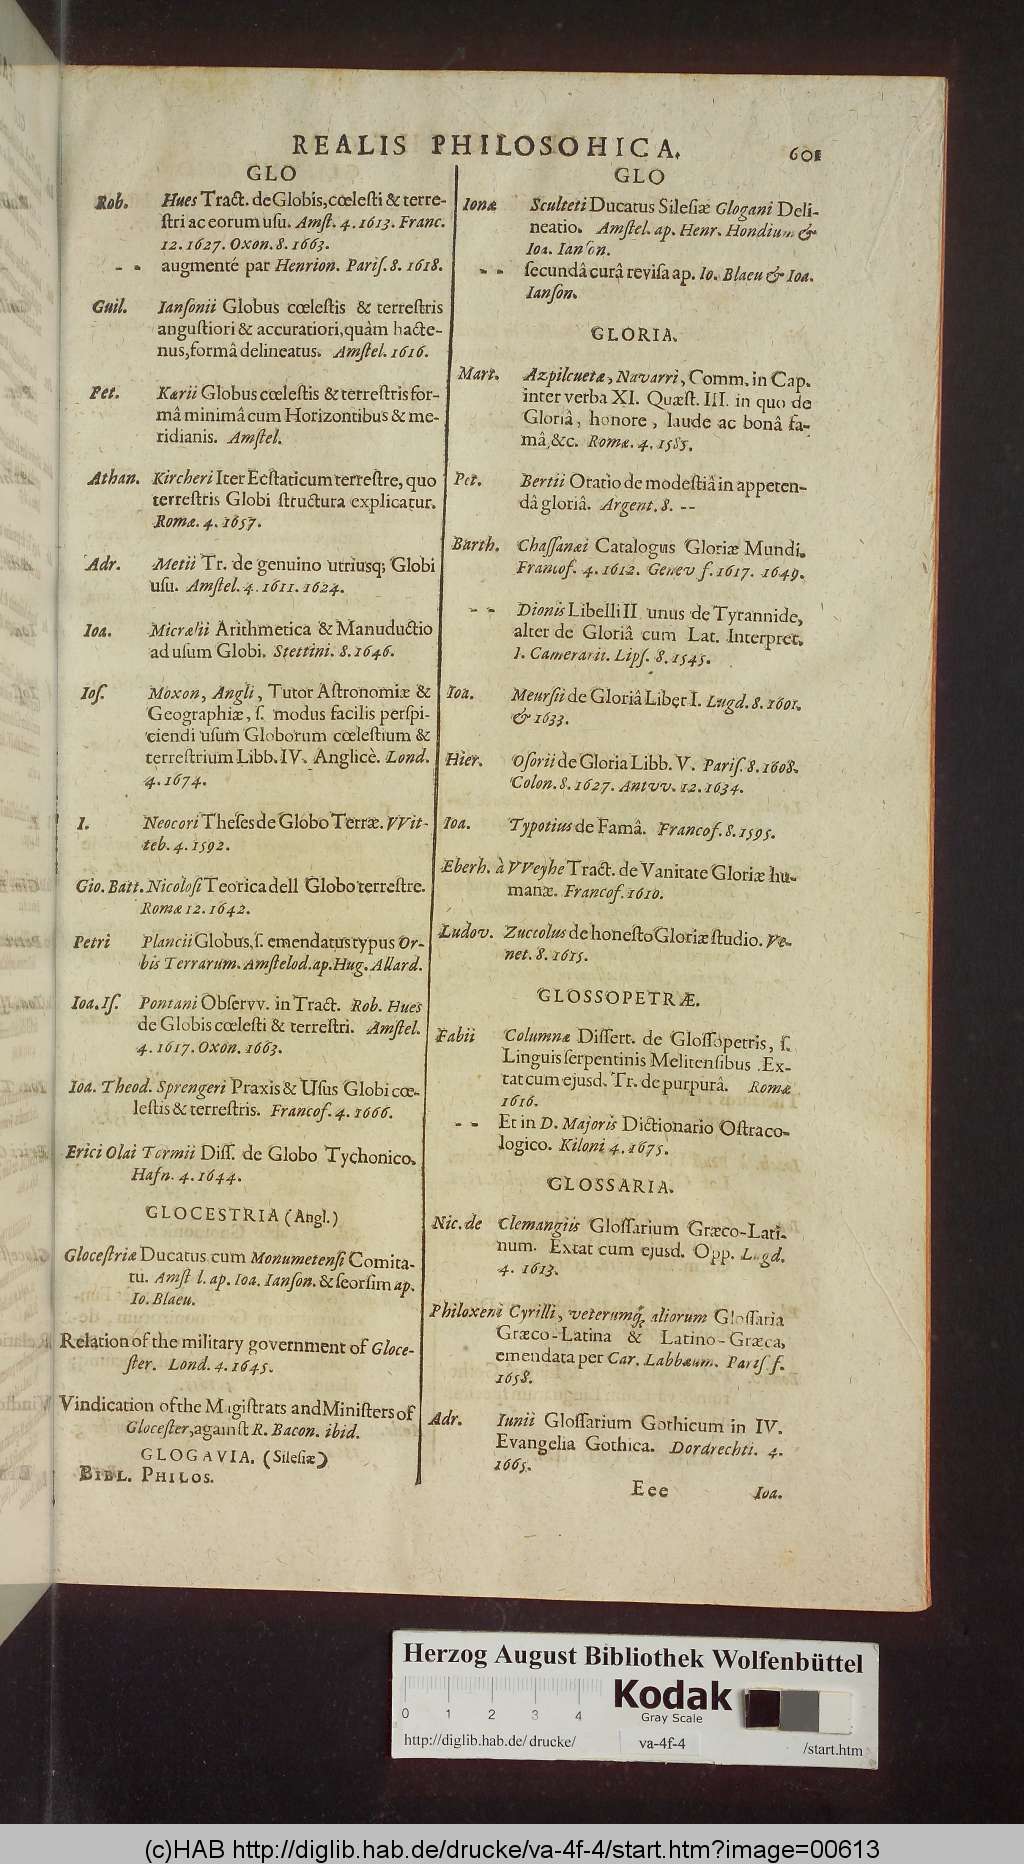 REALIS PHILOSOHICA. 601
GLO
Rob. Hues Tract. de Globis, cœlesti & terre-
stri ac eorum usu. Amst. 4. 1613. Franc.
12. 1627. Oxon. 8. 1663.
- - augmenté par Henrion. Paris. 8. 1618.
Guil. Iansonii Globus cœlestis & terrestris
angustiori & accuratiori, quàm hacte-
nus, formâ delineatus. Amstel. 1616.
Pet. Kærii Globus cœlestis & terrestris for-
mâ minimâ cum Horizontibus & me-
ridianis. Amstel.
Athan. Kircheri Iter Ecstaticum terrestre, quo
terrestris Globi structura explicatur.
Romæ. 4. 1657.
Adr. Metii Tr. de genuino utriusq; Globi
usu. Amstel. 4. 1611. 1624.
Ioa. Micrælii Arithmetica & Manuductio
ad usum Globi. Stettini. 8. 1646.
Ios. Moxon, Angli, Tutor Astronomiæ &
Geographiæ, s. modus facilis perspi-
ciendi usum Globorum cœlestium &
terrestrium Libb. IV. Anglicè. Lond.
4. 1674.
I. Neocori Theses de Globo Terræ. VVit-
teb. 4. 1592.
Gio. Batt. Nicolosi Teorica dell Globo terrestre.
Romæ 12. 1642.
Petri Plancii Globus, s. emendatus typus Or-
bis Terrarum. Amstelod. ap. Hug. Allard.
Ioa. Is. Pontani Observv. in Tract. Rob. Hues
de Globis cœlesti & terrestri. Amstel.
4. 1617. Oxon. 1663.
Ioa. Theod. Sprengeri Praxis & Usus Globi cœ-
lestis & terrestris. Francof. 4. 1666.
Erici Olai Tormii Diss. de Globo Tychonico.
Hafn. 4. 1644.
GLOCESTRIA (Angl.)
Glocestriæ Ducatus cum Monumetensi Comita-
tu. Amst l. ap. Ioa. Ianson. & seorsim ap.
Io. Blaeu.
Relation of the military government of Gloce-
ster. Lond. 4. 1645.
Vindication of the Magistrats and Ministers of
Glocester, against R. Bacon. ibid.
GLOGAVIA. (Silesiæ)
BIBL. PHILOS.
GLO
Ionæ Sculteti Ducatus Silesiæ Glogani Deli-
neatio. Amstel. ap. Henr. Hondium &
Ioa. Ianson.
- - secundâ curâ revisa ap. Io. Blaeu & Ioa.
Ianson.
GLORIA.
Mart. Azpilcuetæ, Navarri, Comm. in Cap.
inter verba XI. Quæst. III. in quo de
Gloriâ, honore, laude ac bonâ fa-
mâ, &c. Romæ. 4. 1585.
Pet. Bertii Oratio de modestiâ in appeten-
dâ gloriâ. Argent. 8. --
Barth. Chassanæi Catalogus Gloriæ Mundi.
Francof. 4. 1612. Genev f. 1617. 1649.
- - Dionis Libelli II unus de Tyrannide,
alter de Gloriâ cum Lat. Interpret.
I. Camerarii. Lips. 8. 1545.
Ioa. Meursii de Gloriâ Liber I. Lugd. 8. 1601.
& 1633.
Hier. Osorii de Gloria Libb. V. Paris. 8. 1608.
Colon. 8. 1627. Antvv. 12. 1634.
Ioa. Typotius de Famâ. Francof. 8. 1595.
Eberh. à VVeyhe Tract. de Vanitate Gloriæ hu-
manæ. Francof. 1610.
Ludov. Zuccolus de honesto Gloriæ studio. Ve-
net. 8. 1615.
GLOSSOPETRÆ.
Fabii Columnæ Dissert. de Glossopetris, s.
Linguis serpentinis Melitensibus. Ex-
tat cum ejusd. Tr. de purpurâ. Romæ
1616.
- - Et in D. Majoris Dictionario Ostraco-
logico. Kiloni 4. 1675.
GLOSSARIA.
Nic. de Clemangiis Glossarium Græco-Lati-
num. Extat cum ejusd. Opp. Lugd.
4. 1613.
Philoxeni Cyrilli, veterumq; aliorum Glossaria
Græco-Latina & Latino-Græca,
emendata per Car. Labbæum. Paris f.
1658.
Adr. Iunii Glossarium Gothicum in IV.
Evangelia Gothica. Dordrechti. 4.
1665.
Eee Ioa.
Herzog August Bibliothek Wolfenbüttel
0 1 2 3 4
Kodak
Gray Scale
http://diglib.hab.de/drucke/ va-4f-4 /start.htm
(c)HAB http://diglib.hab.de/drucke/va-4f-4/start.htm?image=00613